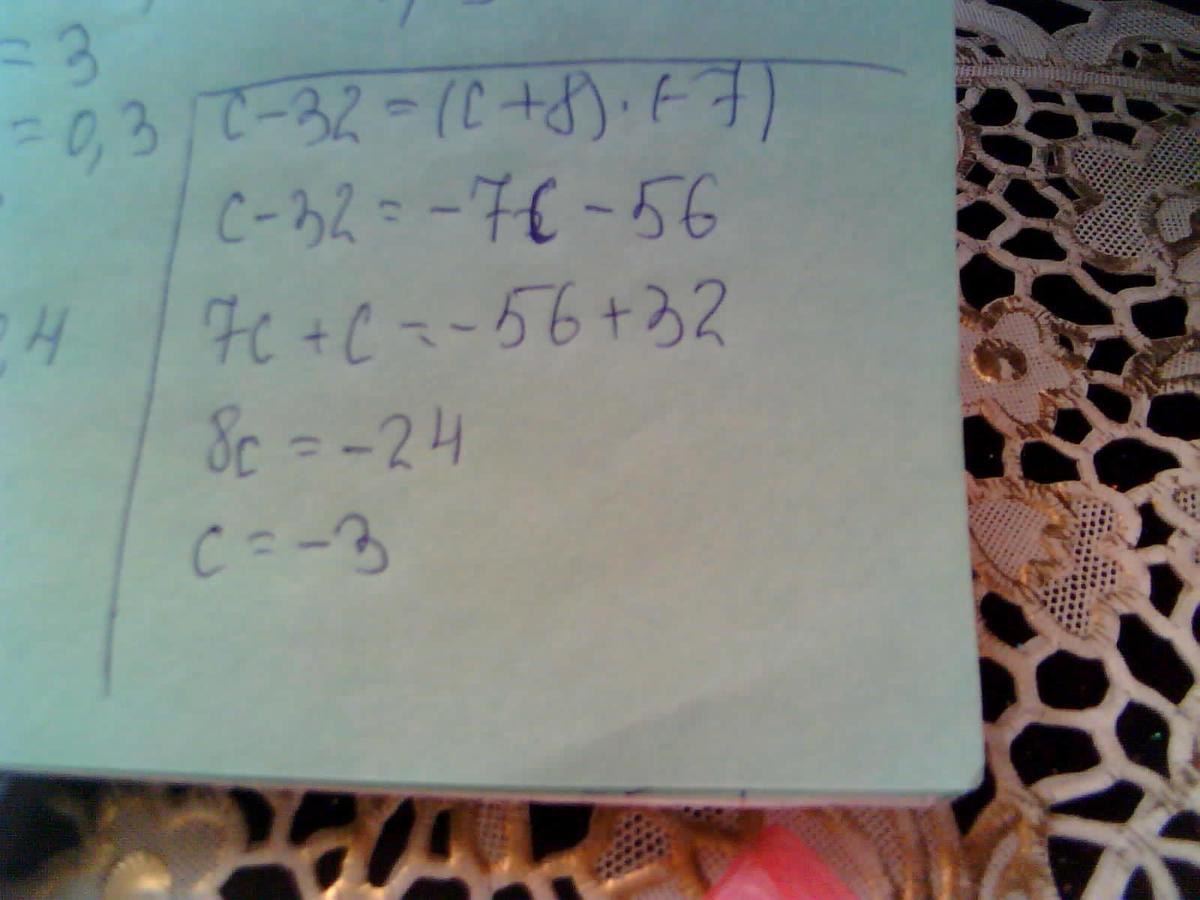 = 3
= 0,3
,4
c - 32 = (c + 8) · (-7)
c - 32 = - 7c - 56
7c + c = - 56 + 32
8c = - 24
c = - 3